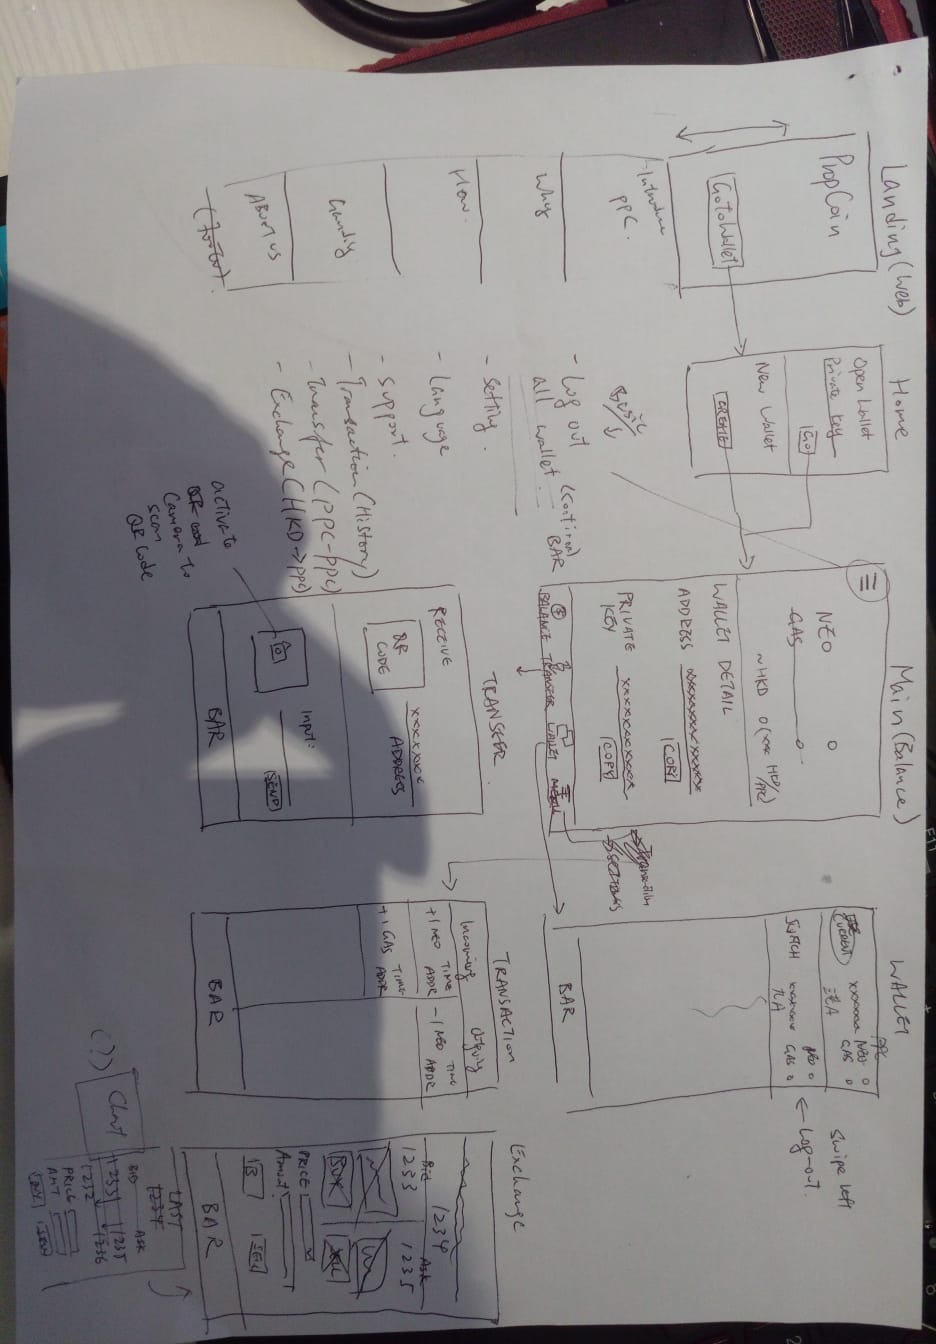 Landing (Web)
PropCoin
Go To Wallet
Introduce
PPC.
Why
How
Landing
ABOUT US
(Footer)
Home
Open Wallet
Private Key
GO
New Wallet
CREATE
Basic
- Log out
all wallet (Confirm)
- Setting.
- Language
- Support.
- Transaction (History)
- Transfer (PPC-PPC)
- Exchange (HKD->PPC)
Main (Balance)
NEO 0
GAS 0
~HKD 0 (xxx HKD/PPC)
WALLET DETAIL
ADDRESS xxxxxxxxxxxxxx
COPY
PRIVATE
KEY xxxxxxxxxxxx
COPY
BAR
BALANCE TRANSFER WALLET MENU
Transaction
SETTINGS
WALLET
PPC
CURRENT xxxxxxx NEO 0
GAS 0
SWITCH xxxxxxx NEO 0
GAS 0
BAR
Swipe left
Log-out.
TRANSFER
RECEIVE
QR
CODE
xxxxxxx
ADDRESS
Input:
SEND
BAR
activate
QR
camera to
scan
QR Code
TRANSACTION
Incoming Outgoing
+1 NEO TIME
ADDR
-1 NEO TIME
ADDR
+1 GAS TIME
ADDR
BAR
Exchange
1234
Bid Ask
1233 1235
BUY SELL
PRICE
Amount:
B SELL
BAR
LAST
1234
BID ASK
1233 1235
1232 1236
PRICE
AMT
BUY SELL
(?) Chart